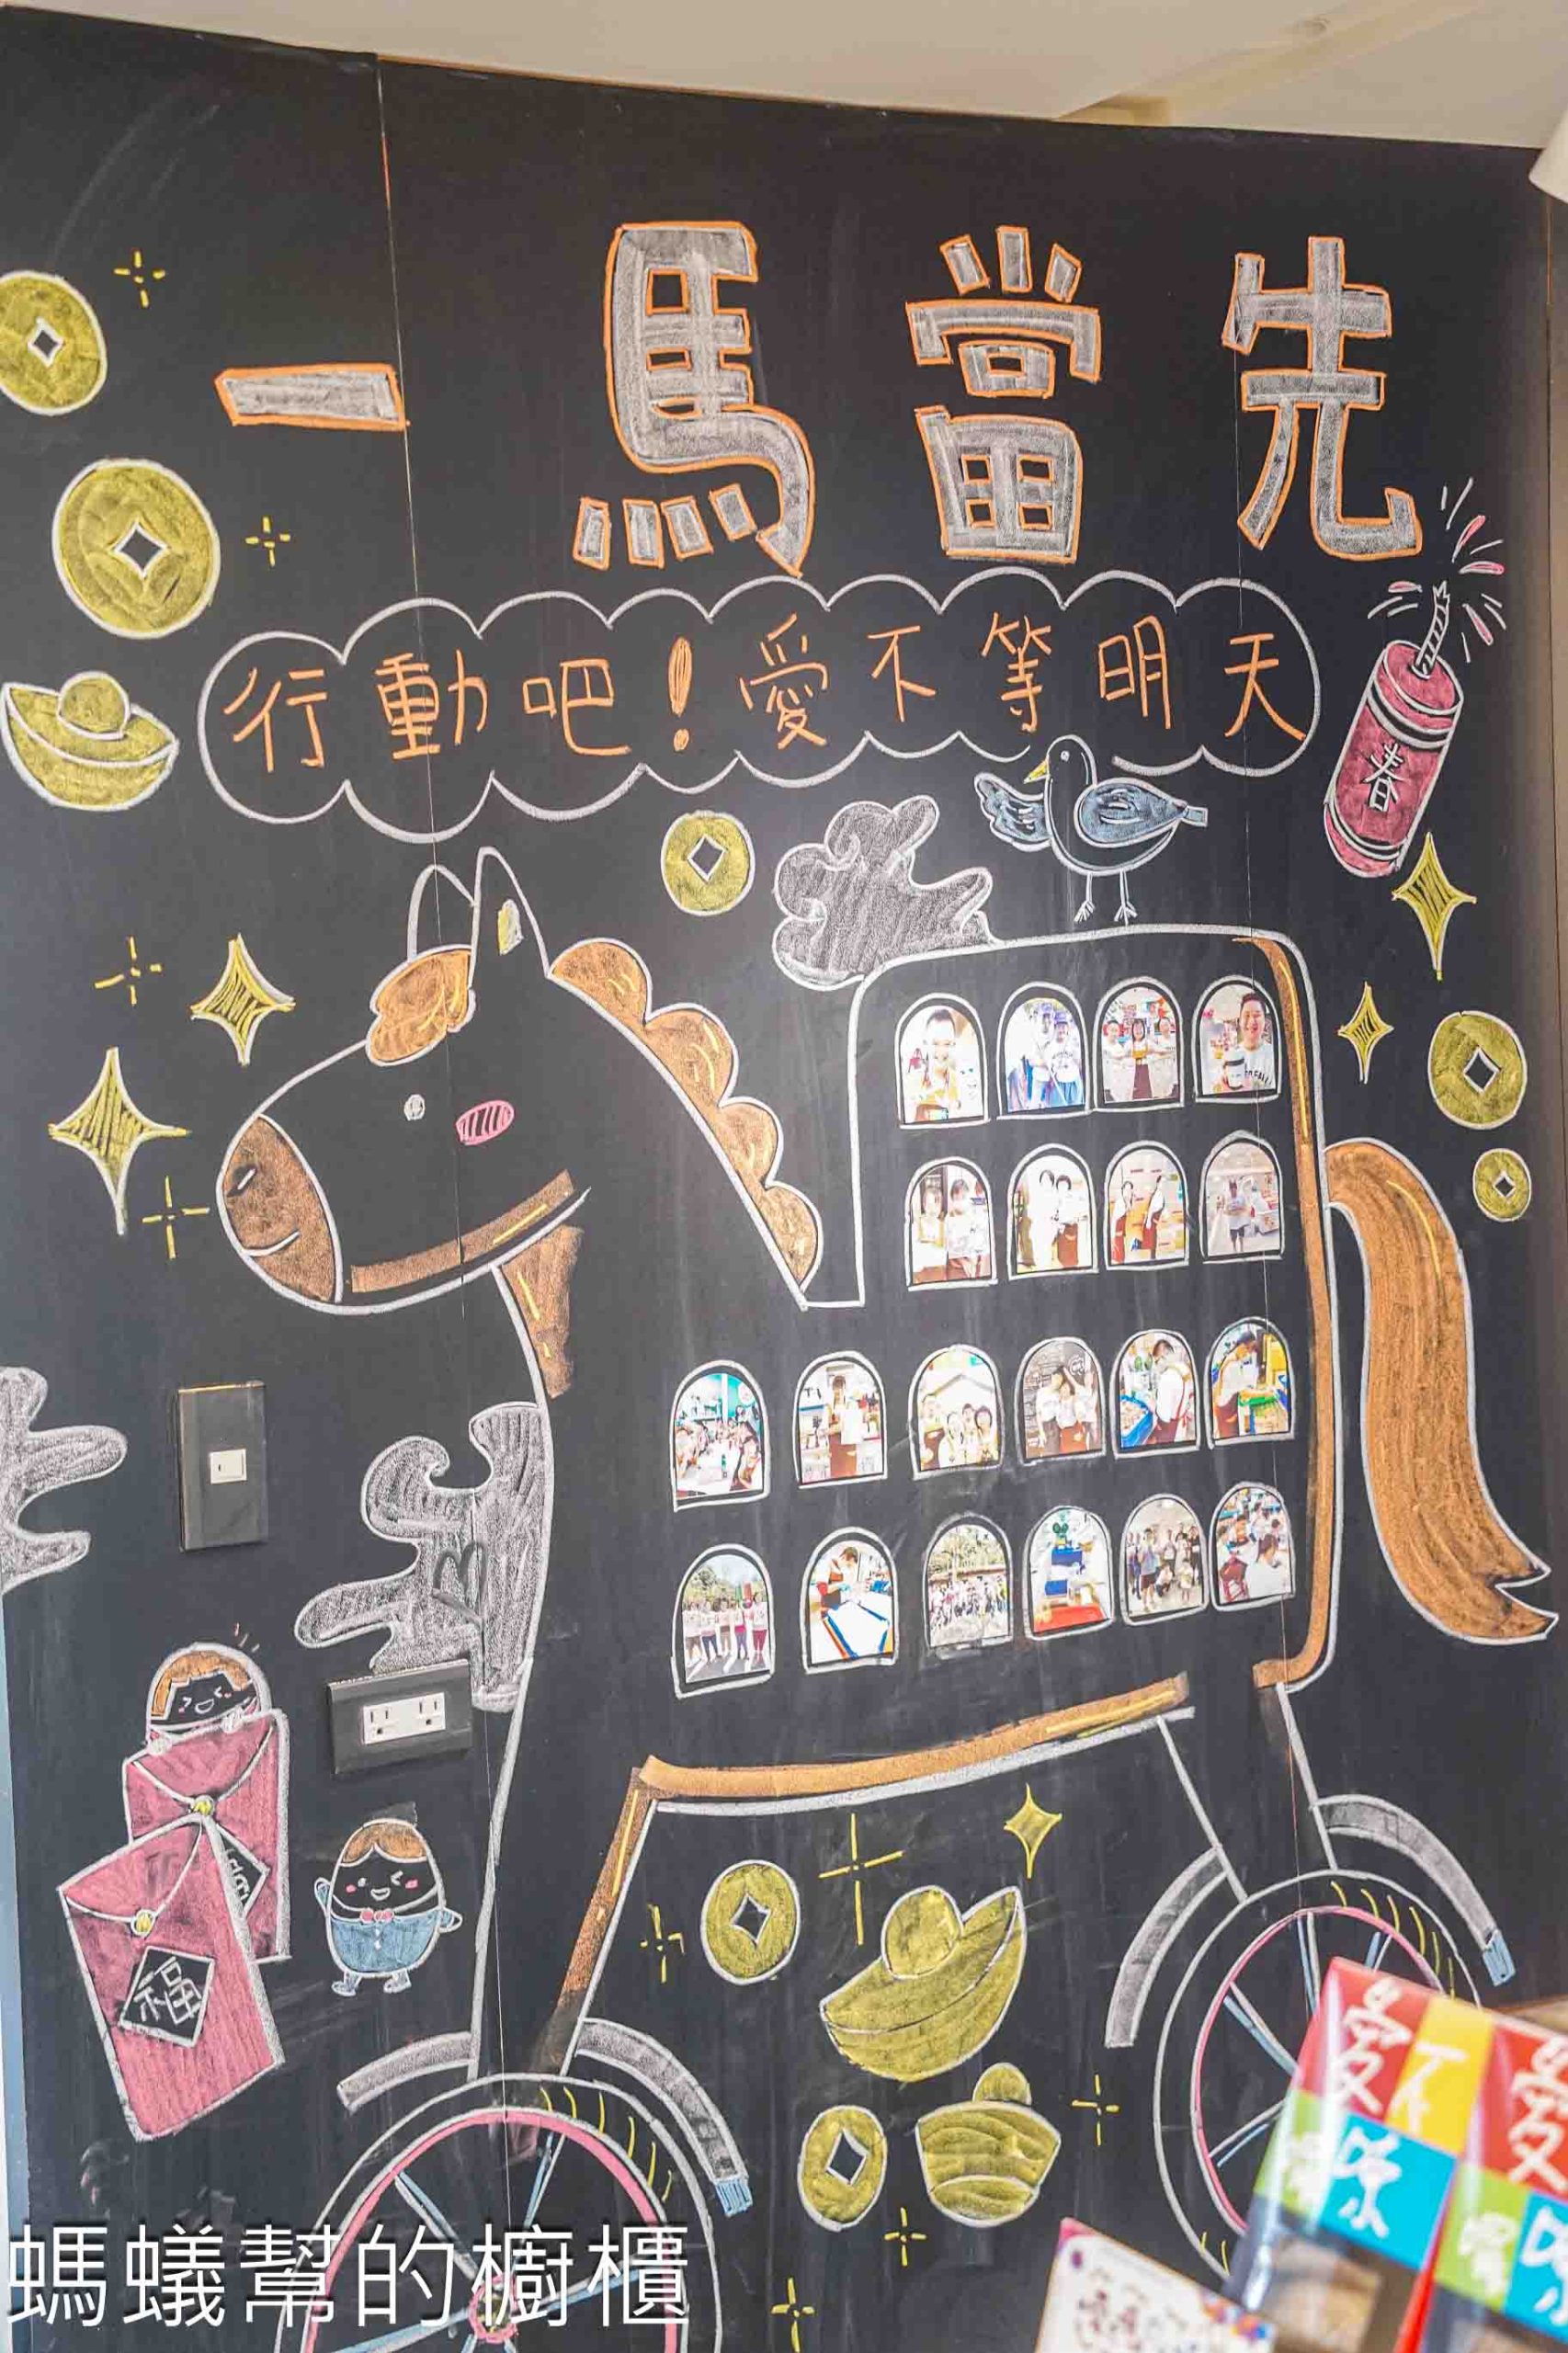 一馬當先
行動吧！愛不等明天
春
福
螞蟻幫的櫥櫃